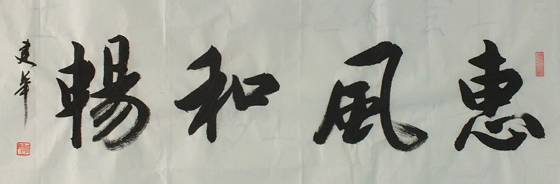 惠風和暢
建華